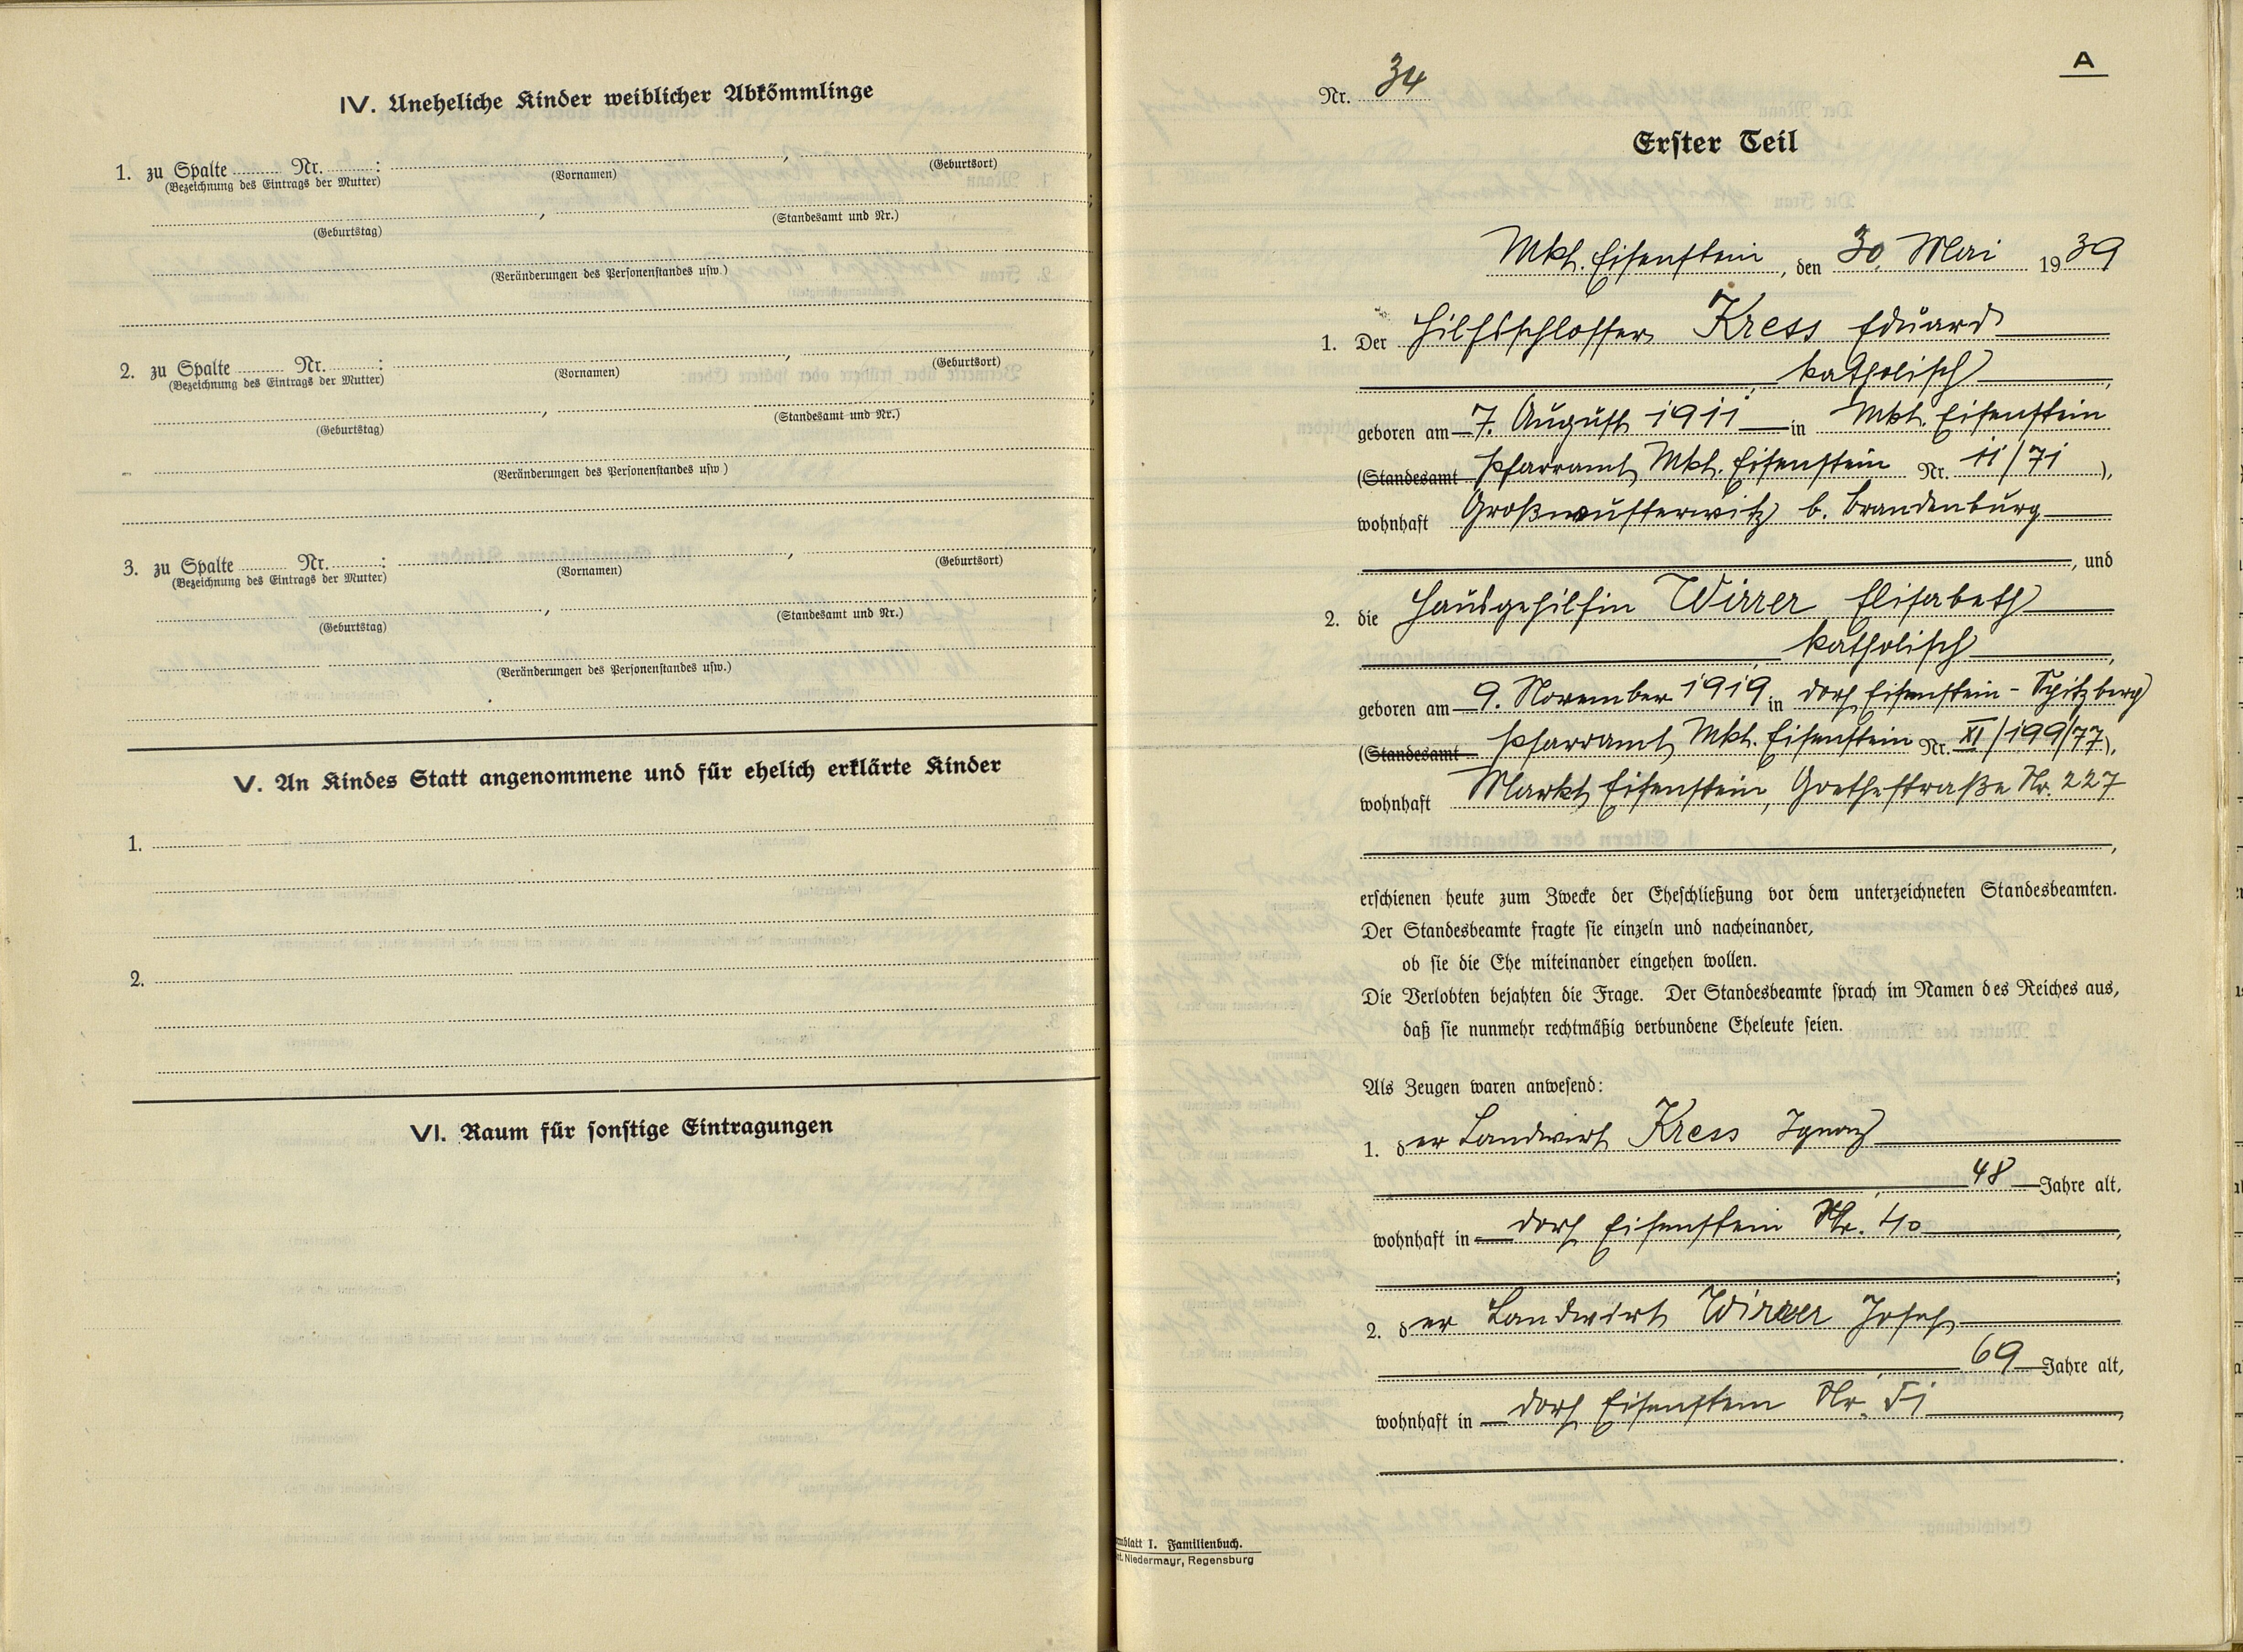 IV. Uneheliche Kinder weiblicher Abkömmlinge
1. zu Spalte Nr. : , 
(Bezeichnung des Eintrags der Mutter) (Vornamen) (Geburtsort)
, ;
(Geburtstag) (Standesamt und Nr.)
(Veränderungen des Personenstandes usw.)
2. zu Spalte Nr. : ,
(Bezeichnung des Eintrags der Mutter) (Vornamen) (Geburtsort)
, ;
(Geburtstag) (Standesamt und Nr.)
(Veränderungen des Personenstandes usw.)
3. zu Spalte Nr. : ,
(Bezeichnung des Eintrags der Mutter) (Vornamen) (Geburtsort)
, ;
(Geburtstag) (Standesamt und Nr.)
(Veränderungen des Personenstandes usw.)
V. An Kindes Statt angenommene und für ehelich erklärte Kinder
1.
2.
VI. Raum für sonstige Eintragungen
A
Nr. 34
Erster Teil
Mkt. Eisenstein, den 30. Mai 1939
1. Der Hilfsschlosser Kress Eduard
, katholisch,
geboren am 7. August 1911 in Mkt. Eisenstein
(Standesamt Pfarramt Mkt. Eisenstein Nr. 11/71),
wohnhaft Großwusterwitz b. Brandenburg
, und
2. die Hausgehilfin Wirrer Elisabeth
, katholisch,
geboren am 9. November 1919 in Dorf Eisenstein - Spitzberg
(Standesamt Pfarramt Mkt. Eisenstein Nr. XI/199/77),
wohnhaft Markt Eisenstein, Goethestraße Nr. 227
,
erschienen heute zum Zwecke der Eheschließung vor dem unterzeichneten Standesbeamten.
Der Standesbeamte fragte sie einzeln und nacheinander,
ob sie die Ehe miteinander eingehen wollen.
Die Verlobten bejahten die Frage. Der Standesbeamte sprach im Namen des Reiches aus,
daß sie nunmehr rechtmäßig verbundene Eheleute seien.
Als Zeugen waren anwesend:
1. der Landwirt Kress Ignaz
, 48 Jahre alt,
wohnhaft in Dorf Eisenstein Nr. 40,
;
2. der Landwirt Wirrer Josef
, 69 Jahre alt,
wohnhaft in Dorf Eisenstein Nr. 51,
.
blatt I. Familienbuch.
Niedermayr, Regensburg